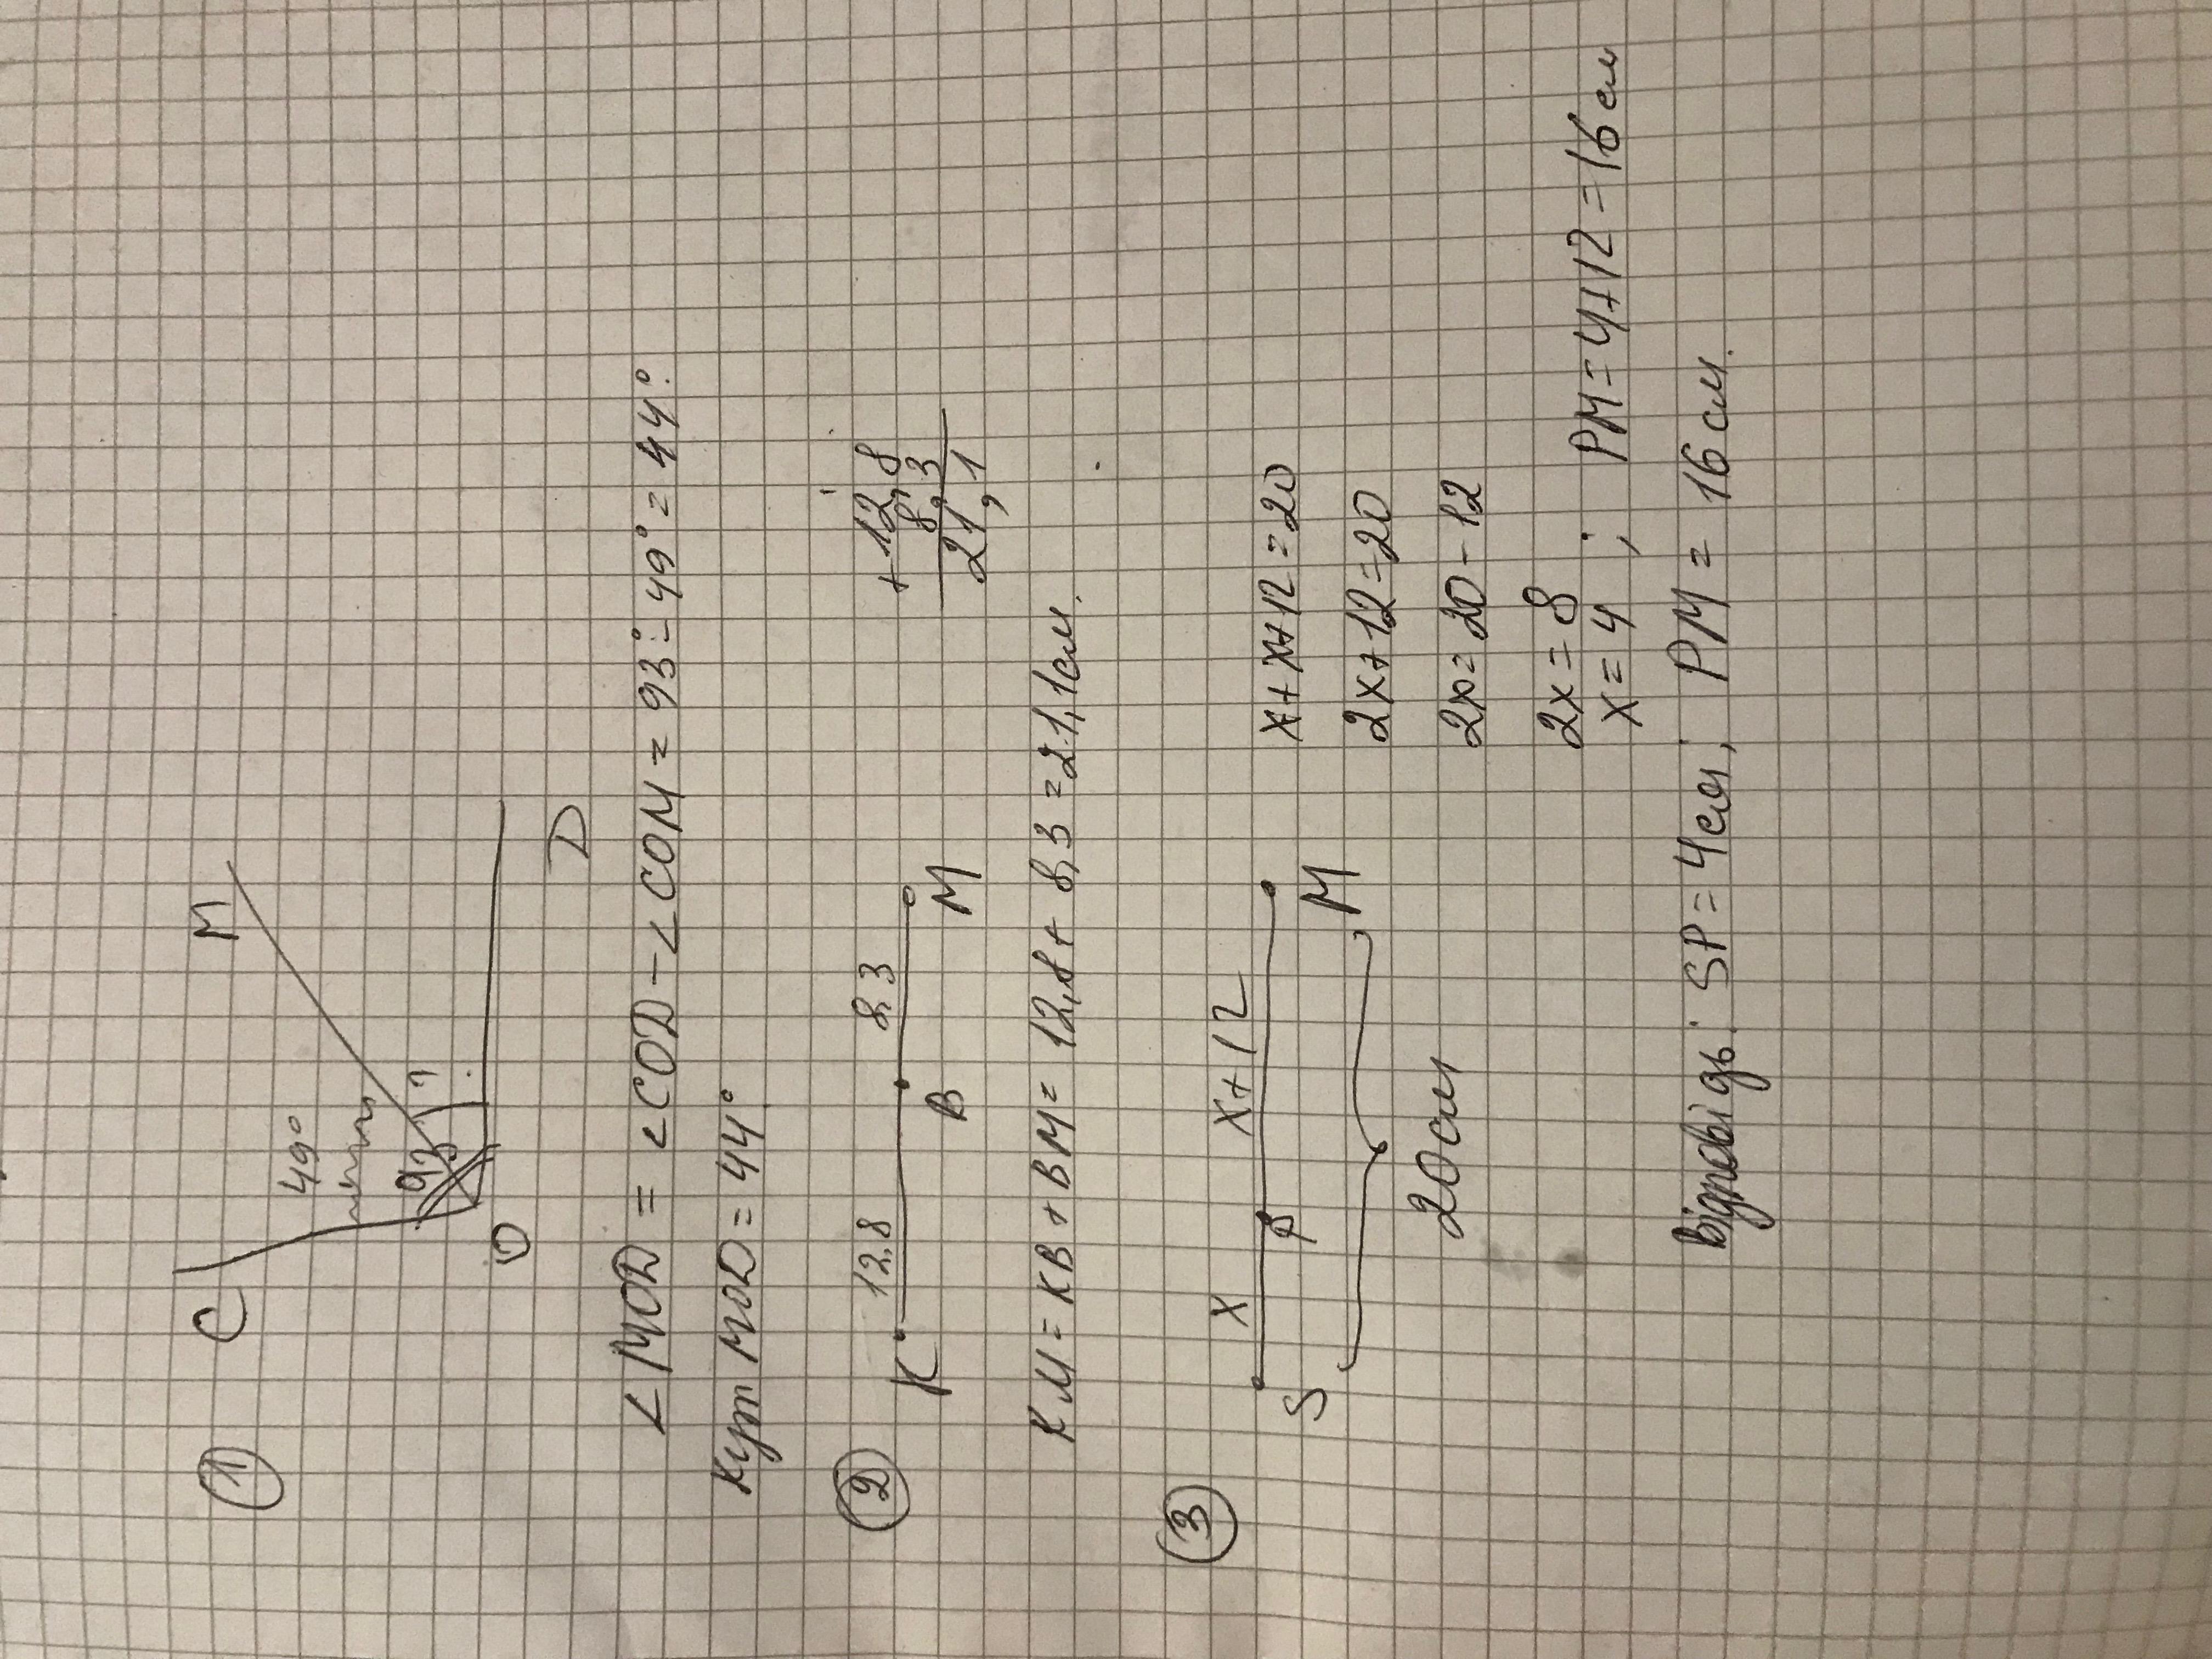 1
C
M
49°
93
?
O
D
∠MOD = ∠COD - ∠COM = 93° - 49° = 44°.
Кут MOD = 44°.
2
12,8
8,3
K
B
M
+ 12,8
8,3
21,1
KM = KB + BM = 12,8 + 8,3 = 21,1см.
3
X
X+12
S
P
M
20см
x+x+12=20
2x+12=20
2x=20-12
2x=8
x=4 ; PM=4+12=16см
Відповідь: SP=4см; PM=16см.